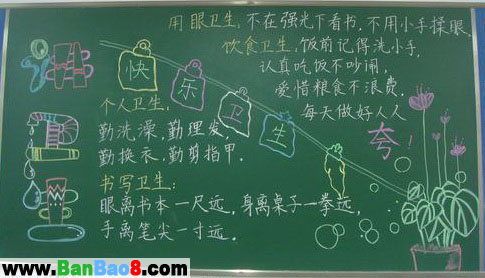 用眼卫生,不在强光下看书.不用小手揉眼.
饮食卫生,饭前记得洗小手,
认真吃饭不吵闹,
爱惜粮食不浪费.
每天做好人人
夸!
快
乐
卫
生
个人卫生:
勤洗澡,勤理发
勤换衣,勤剪指甲.
书写卫生:
眼离书本一尺远.身离桌子一拳远,
手离笔尖一寸远.
www.BanBao8.com